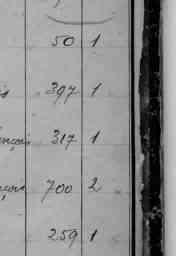 50 1
397 1
317 1
700 2
259 1